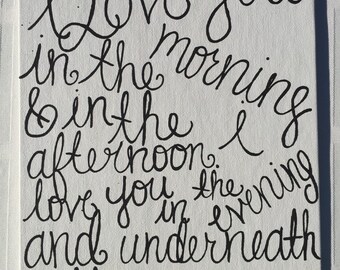 I Love you
in the morning
& in the
afternoon I
love you in the evening
and underneath